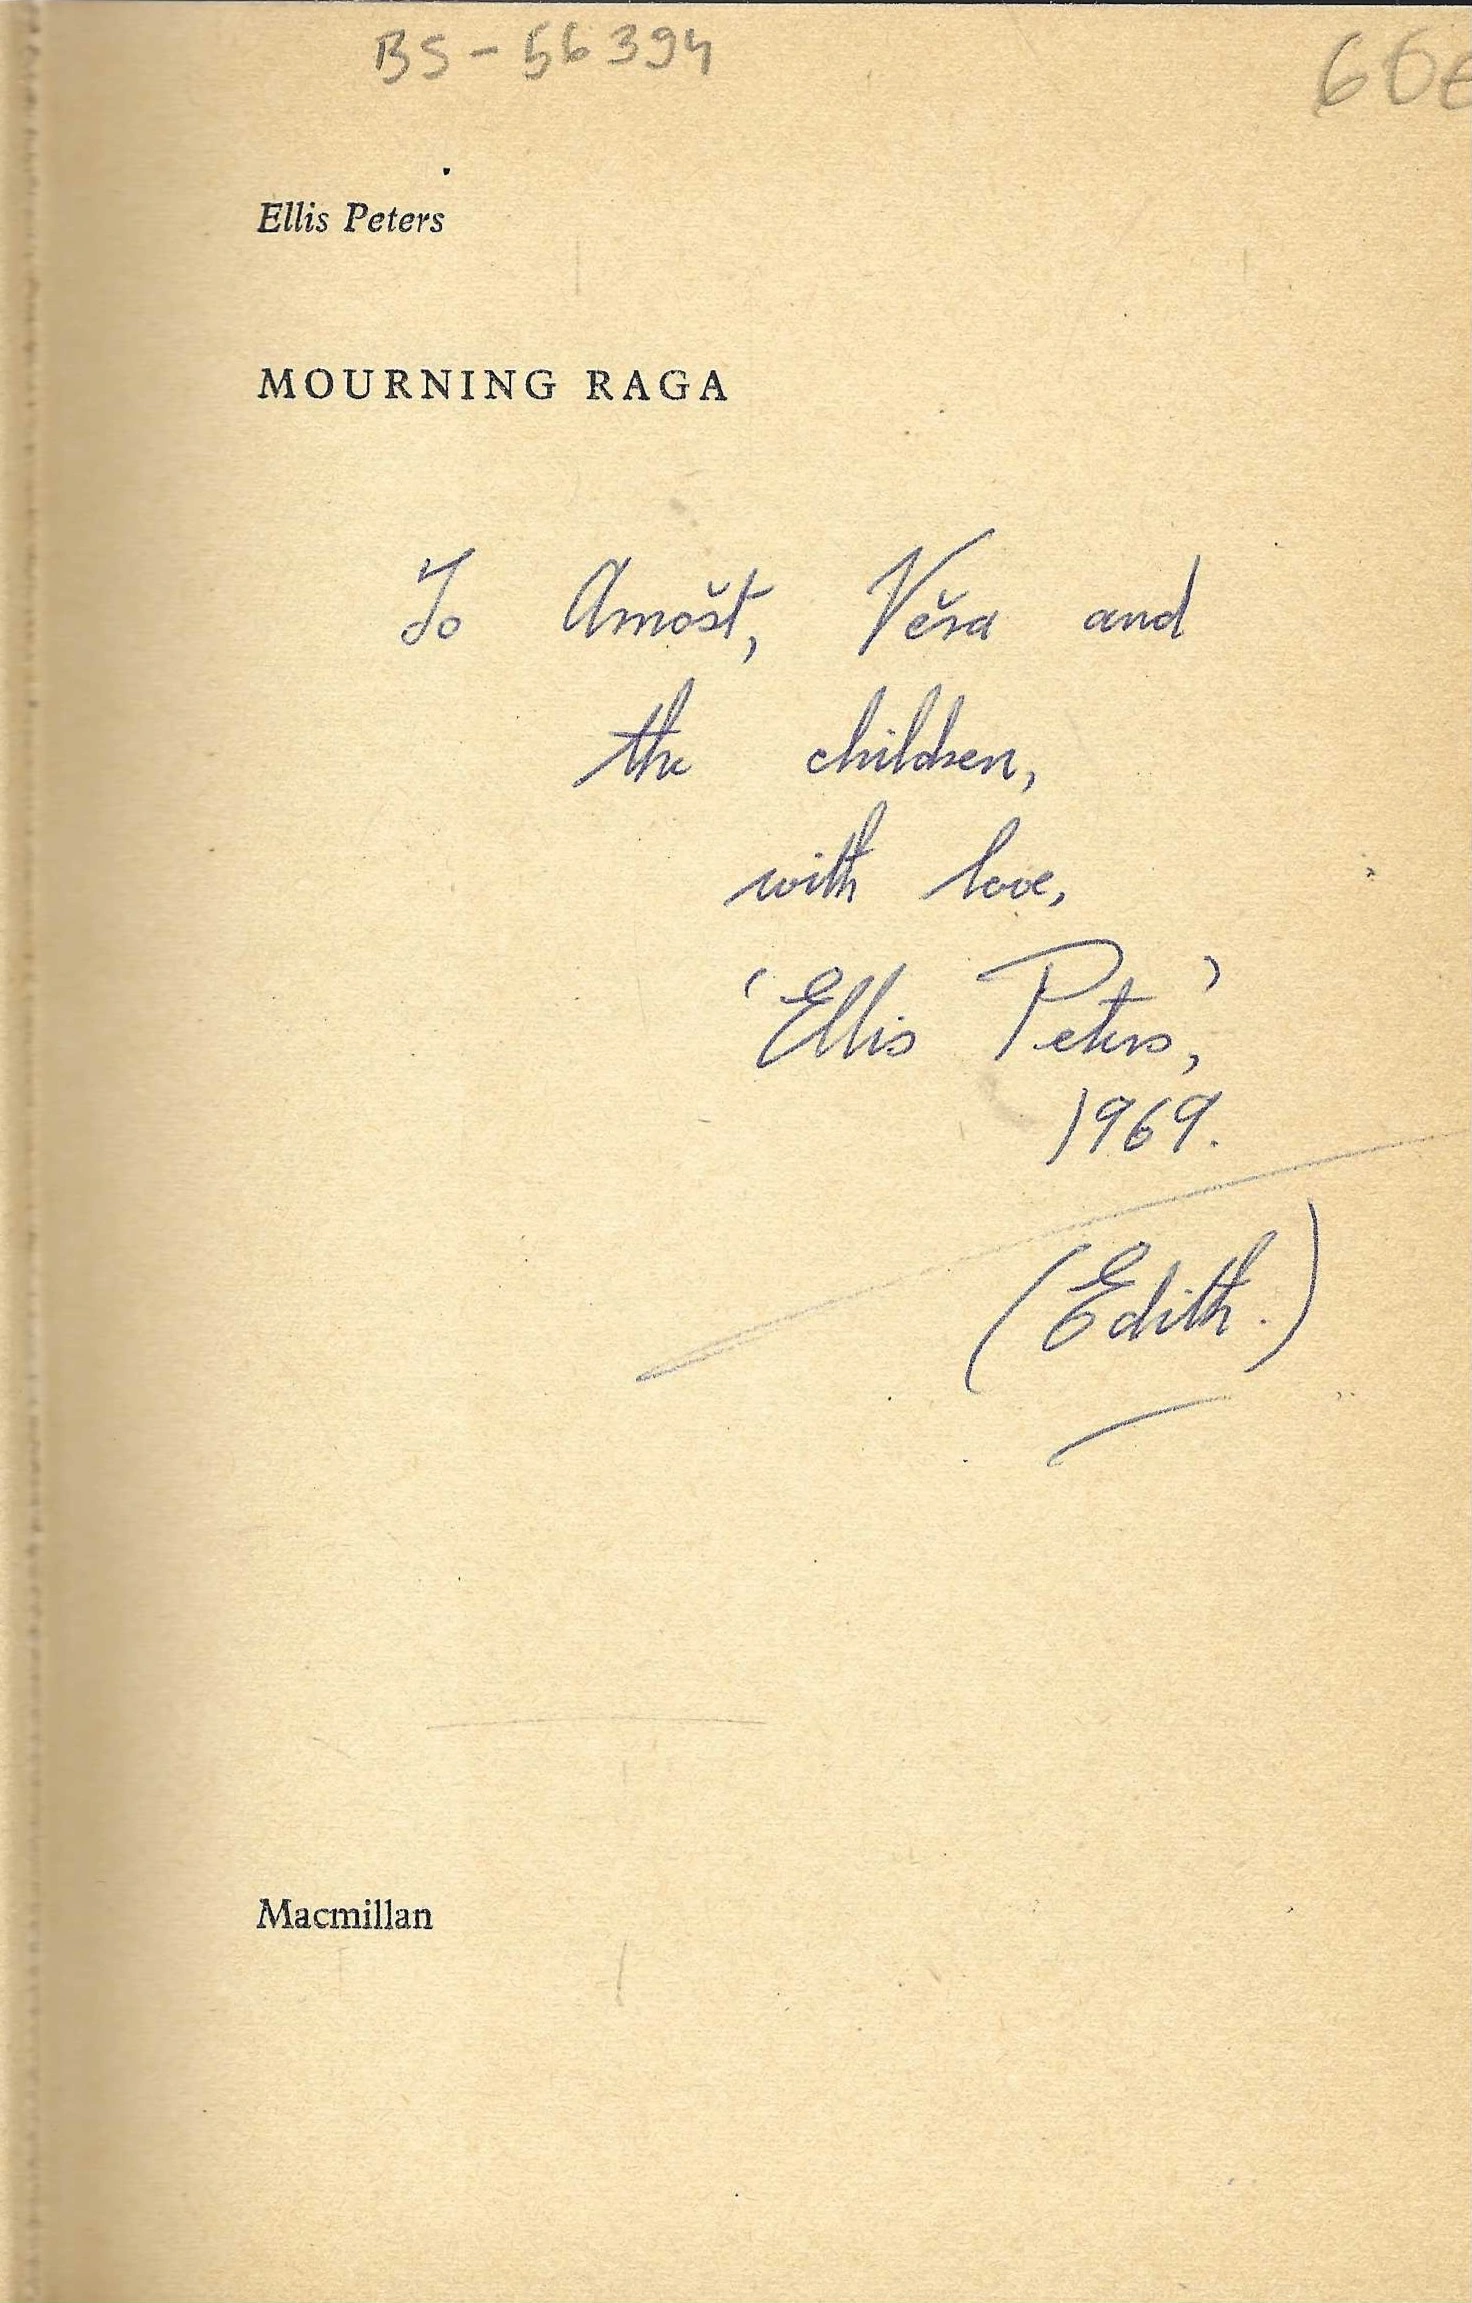 BS-56394
60€
Ellis Peters
MOURNING RAGA
To Arnošt, Věra and
the children,
with love,
‘Ellis Peters’,
1969.
(Edith.)
Macmillan